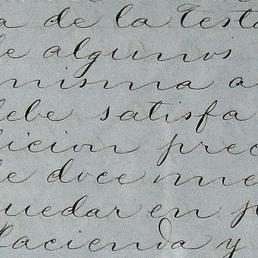 a de la Testa
de algunos
misma a
debe satisfa
dicion prec
de doce me
quedar en p
Hacienda y